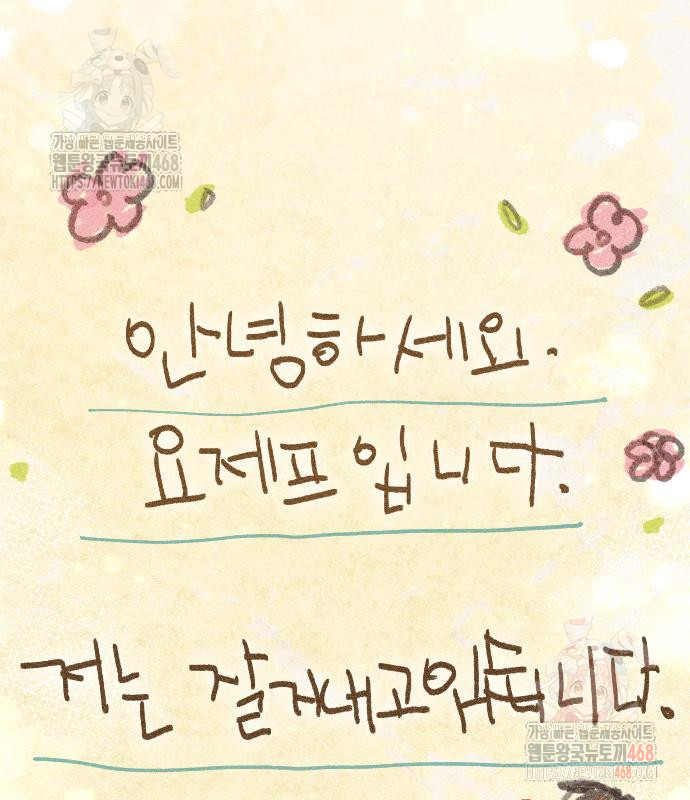 가장 빠른 웹툰제공사이트
웹툰왕국뉴토끼468
HTTPS://NEWTOKI468.COM
안녕하세요.
요제프입니다.
저는 잘지내고있습니다.
가장 빠른 웹툰제공사이트
웹툰왕국뉴토끼468